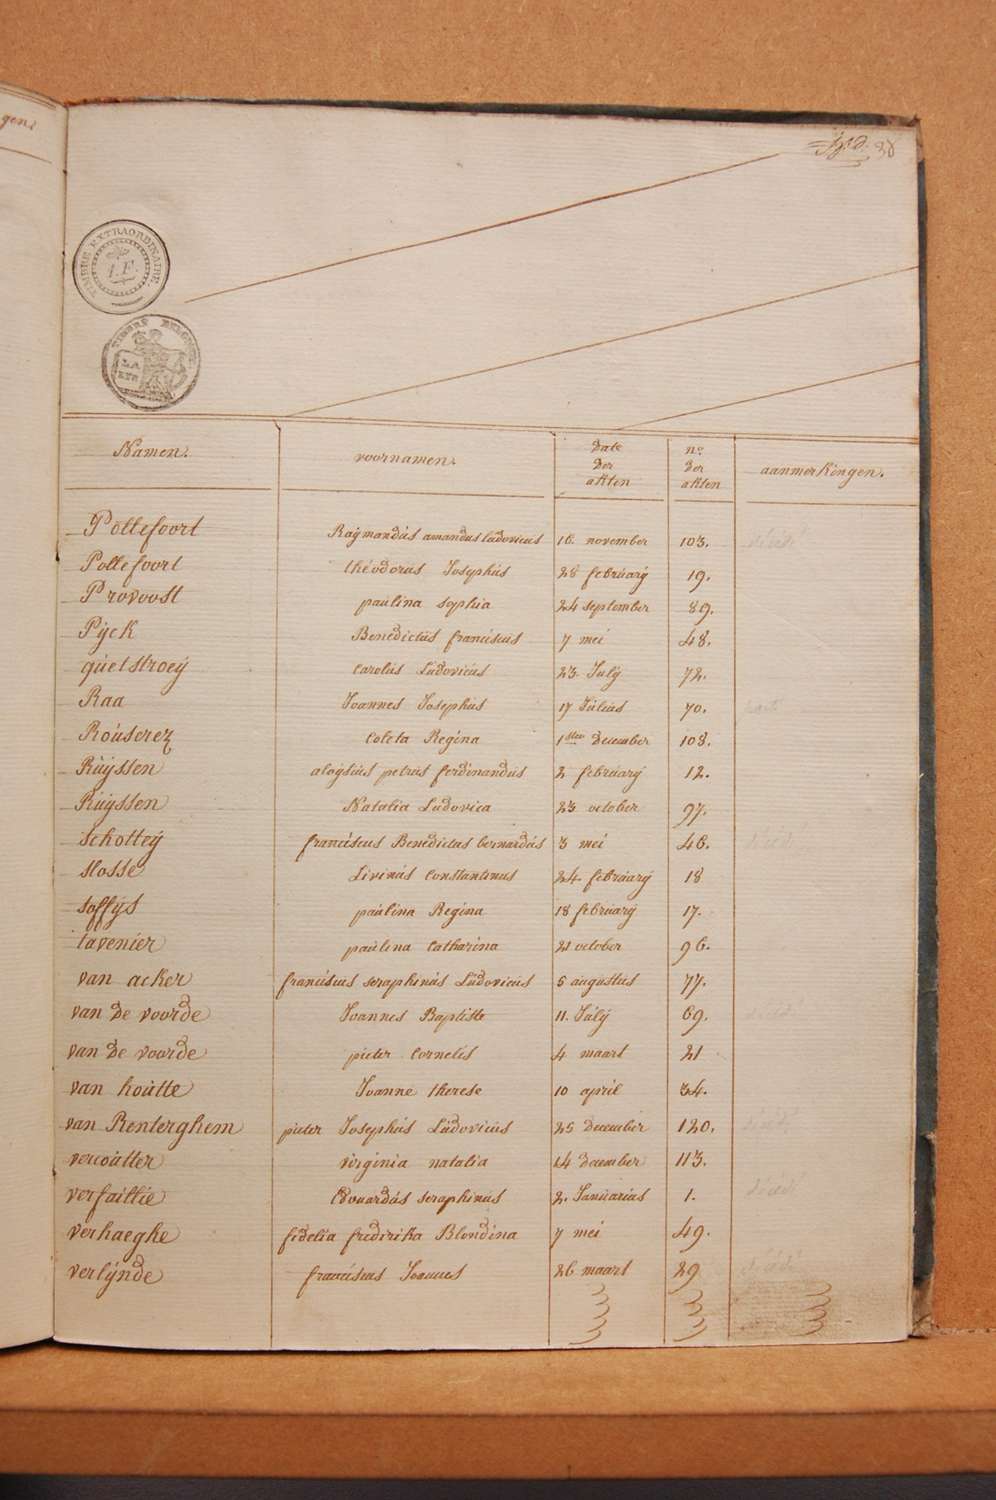 gen.
38
TIMBRE EXTRAORDINAIRE.
TIMBRE
LA
Namen. voornamen. date der akten no der akten aanmerkingen.
Pollefoort Raÿmondus amandus ludovicus 16 november 103.
Pollefoort théodorus Josephus 28 februarÿ 19.
Provoost paulina sophia 24 september 89.
Pÿck Benedictus franciscus 7 mei 48.
quelstroeÿ carolus Ludovicus 23. Julÿ 72.
Raa Joannes Josephus 17 Julius 70.
Rouserez coleta Regina 1sten december 108.
Ruÿssen aloÿsius petrus ferdinandus 2 februarÿ 12.
Ruÿssen Natalia Ludovica 23 october 97.
Schotteÿ franciscus Benedictus bernardus 3 mei 46.
slosse Livinus constantinus 24. februarÿ 18
soffÿs paulina Regina 18 februarÿ 17.
tavenier paulina catharina 21 october 96.
van acker franciscus seraphinus Ludovicus 5 augustus 77.
van de voorde Joannes Baptiste 11. Julÿ 69.
van de voorde pieter cornelis 4 maart 21
van houtte Joanne therese 10 april 34.
van Renterghem pieter Josephus Ludovicus 25 december 120.
vercoutter virginia natalia 14 december 113.
verfaillie Edouardus seraphinus 2. Januarius 1.
verhaeghe fidelia fredirika Blondina 7 mei 49.
verlÿnde franciscus Joannes 26 maart 29